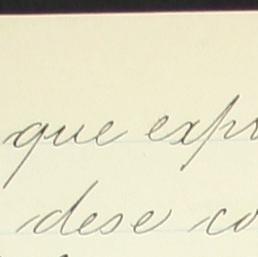 que expr
dese co